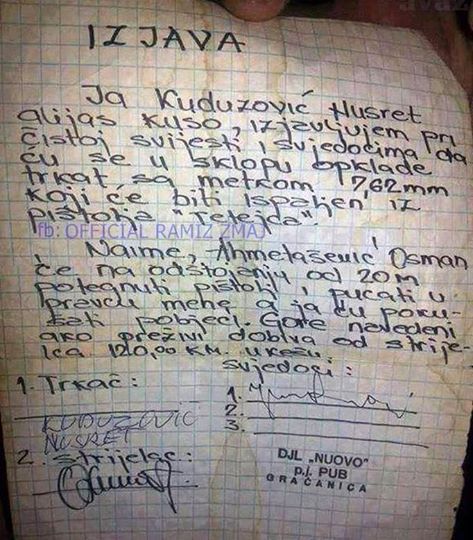 IZJAVA
Ja Kuduzović Husret
alijas Kuso, izjavljujem pri
čistoj svijesti i svjedocima da
ću se u sklopu opklade
trkat sa metkom 7,62mm
koji će biti ispaljen iz
pištolja "Tetejda".
fb: OFFICIAL RAMIZ ZMAJ
Naime, Ahmetašević Osman
će na odstojanju od 20m
potegnuti pištolj i pucati u
pravcu mene a ja ću poku-
šati pobjeći. Gore navedeni
ako preživi dobiva od strije-
lca 120,00 KM. u kešu.
svjedoci:
1. Trkač:
1.
KUDUZOVIĆ
2.
NUSRET
3.
2. strijelac:
DJL „NUOVO"
p.j. PUB
GRAČANICA